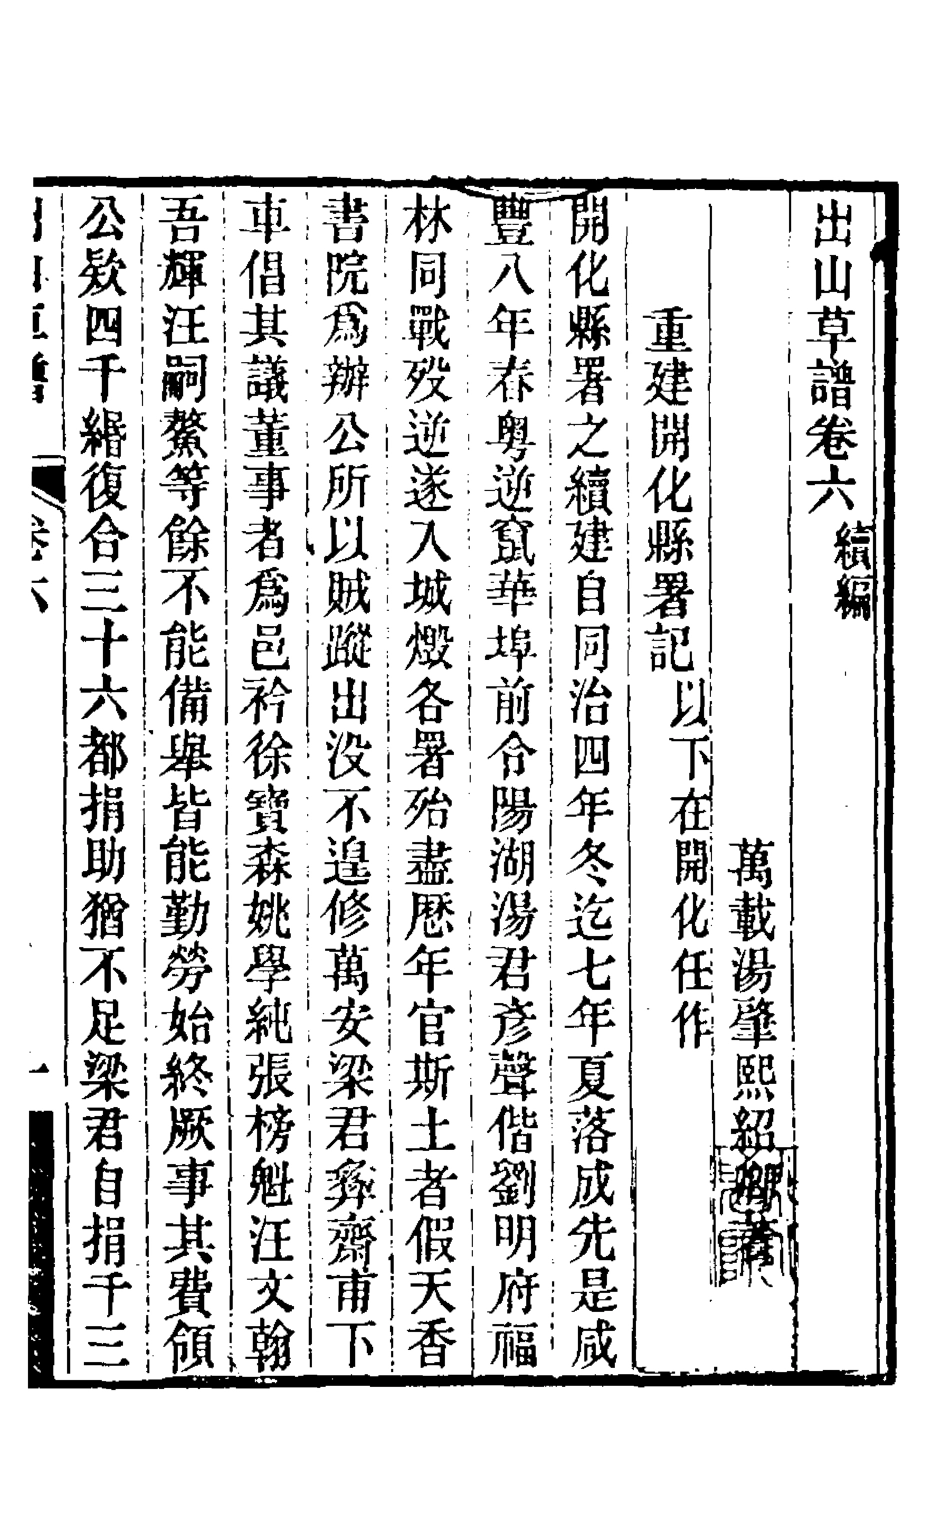 出山草譜卷六 續編
萬載湯肇熙紹卿著
重建開化縣署記 以下在開化任作
開化縣署之續建自同治四年冬迄七年夏落成先是咸
豐八年春粵逆竄華埠前令陽湖湯君彥聲偕劉明府福
林同戰歿逆遂入城燬各署殆盡歷年官斯土者假天香
書院爲辦公所以賊蹤出没不遑修萬安梁君彝齋甫下
車倡其議董事者爲邑衿徐寶森姚學純張榜魁汪文翰
吾輝汪嗣鰲等餘不能備舉皆能勤勞始終厥事其費領
公款四千緡復合三十六都捐助猶不足梁君自捐千三
出山草譜 卷六 一